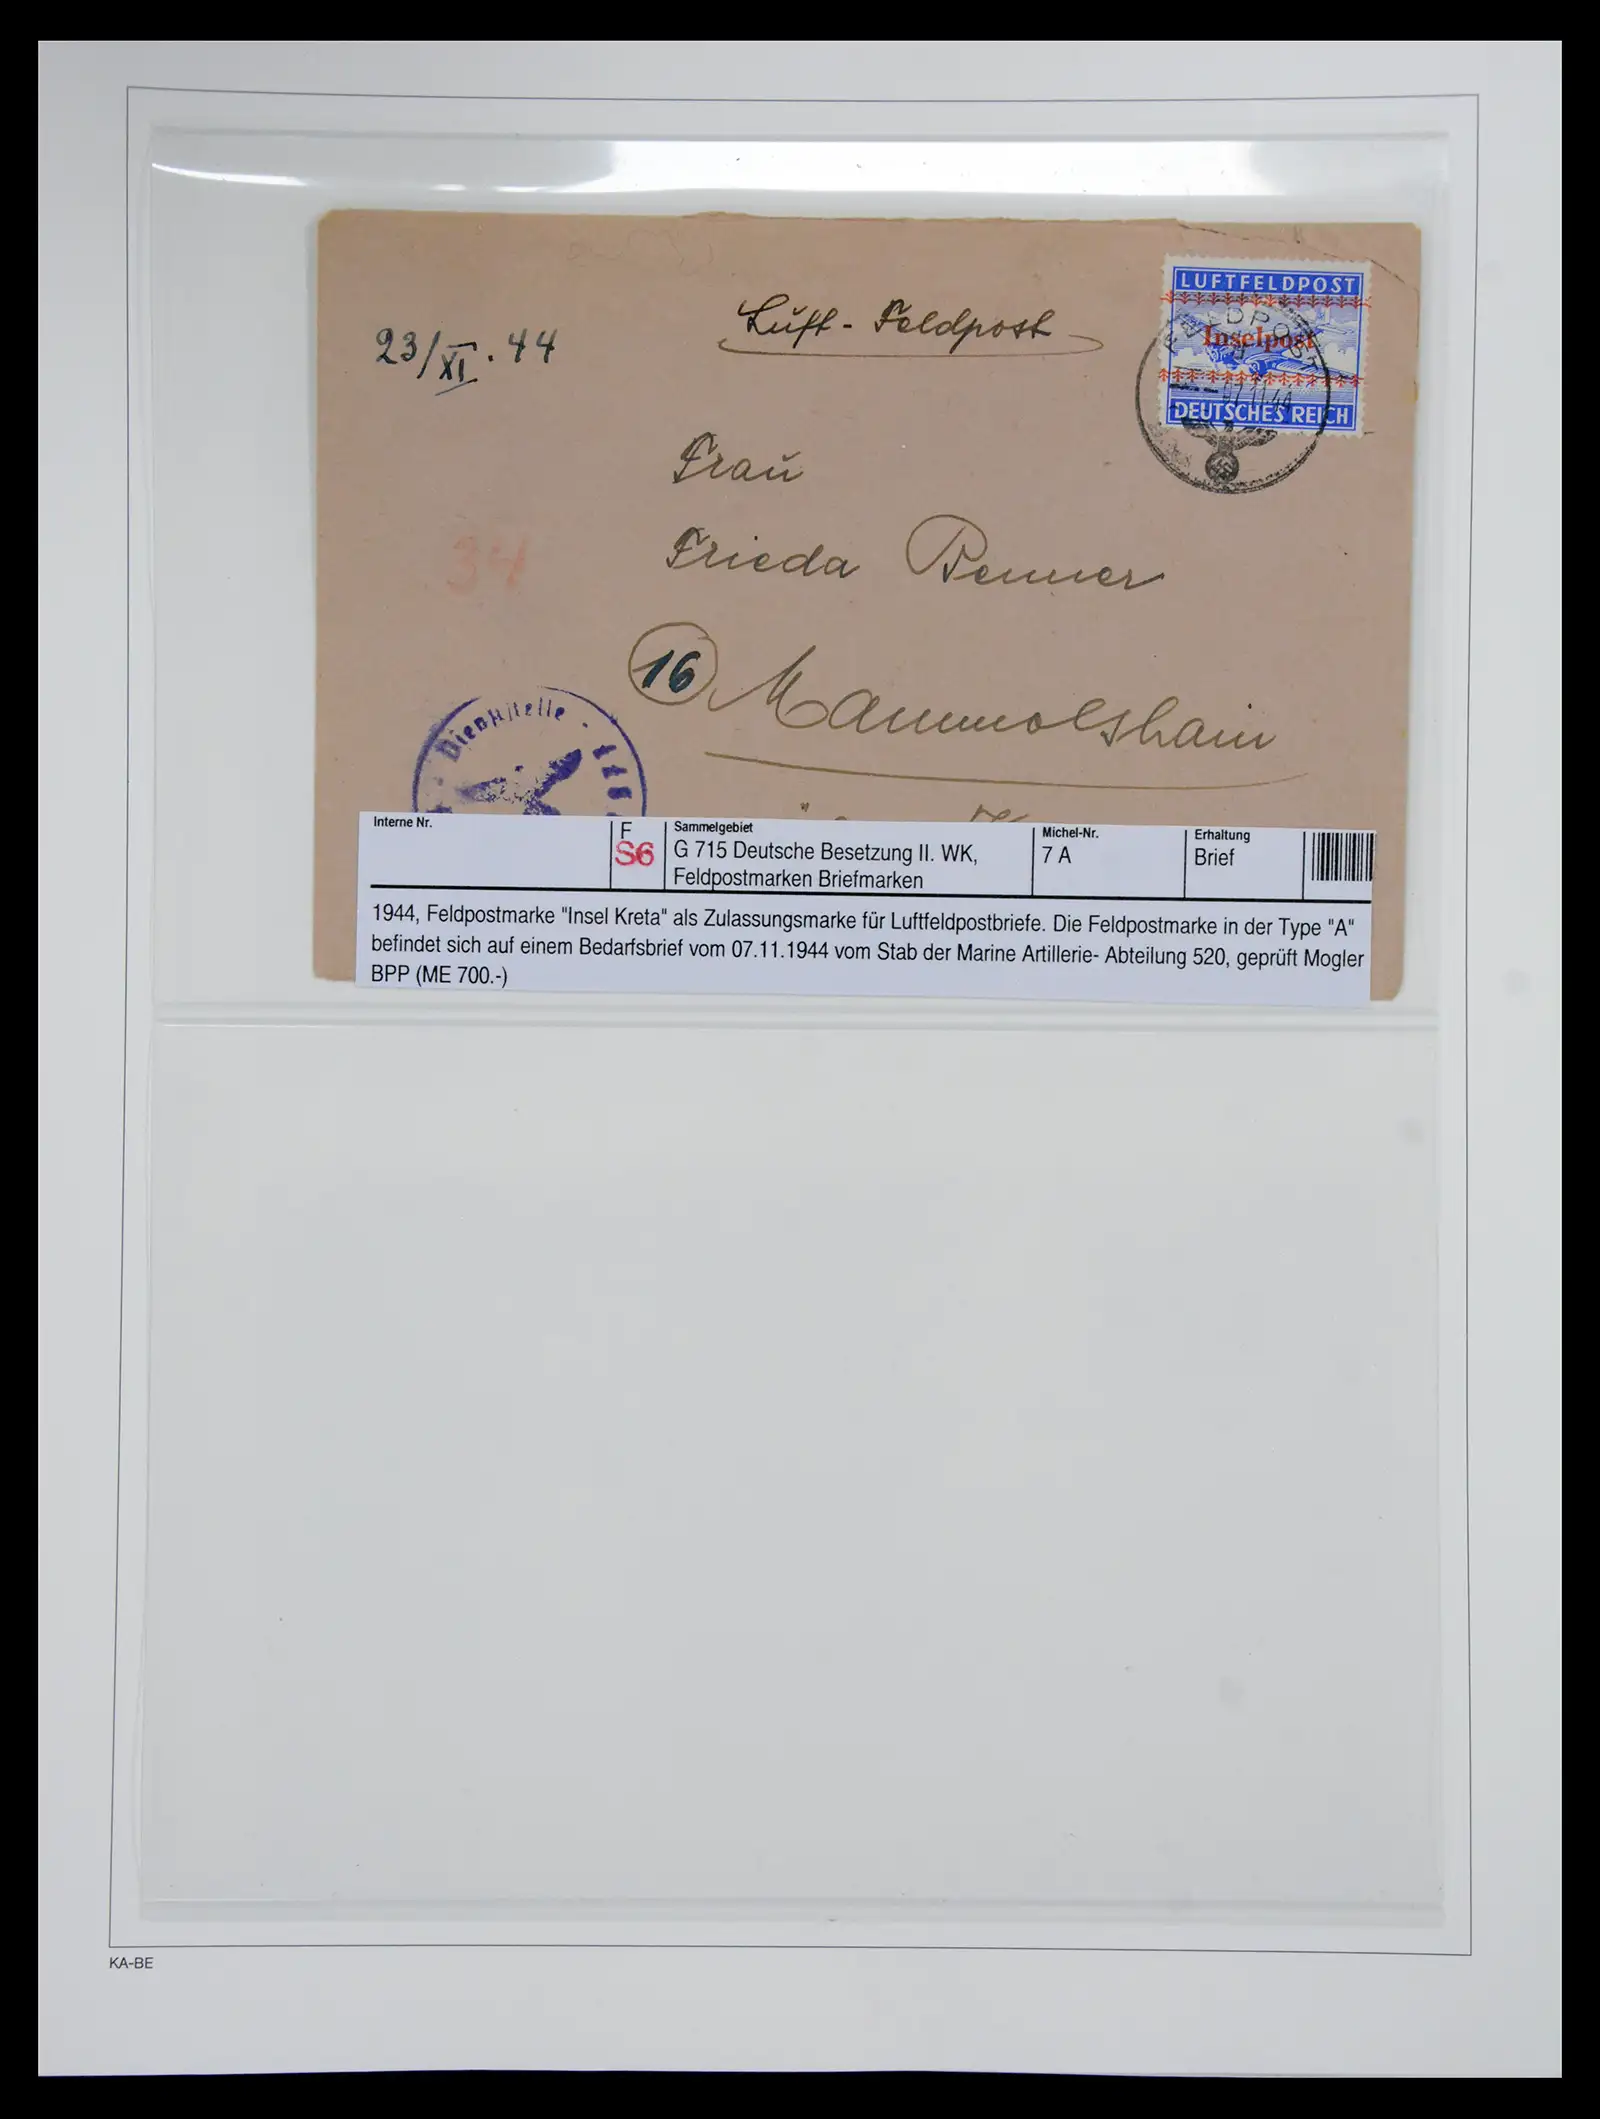 23/XI.44
Luft-Feldpost
LUFTFELDPOST
Inselpost
DEUTSCHES REICH
FELDPOST
07.11.44
Frau
Frieda Benner
34
16 Mammolshain
Dienststelle
Interne Nr.
F
S6
Sammelgebiet
G 715 Deutsche Besetzung II. WK,
Feldpostmarken Briefmarken
Michel-Nr.
7 A
Erhaltung
Brief
1944, Feldpostmarke "Insel Kreta" als Zulassungsmarke für Luftfeldpostbriefe. Die Feldpostmarke in der Type "A"
befindet sich auf einem Bedarfsbrief vom 07.11.1944 vom Stab der Marine Artillerie- Abteilung 520, geprüft Mogler
BPP (ME 700.-)
KA-BE